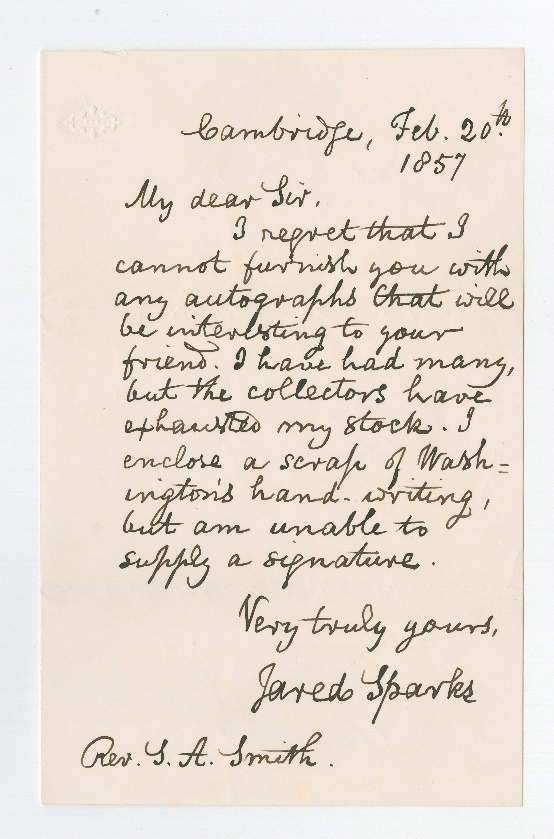 Cambridge, Feb. 20th.
1857
My dear Sir,
I regret that I
cannot furnish you with
any autographs that will
be interesting to your
friend. I have had many,
but the collectors have
exhausted my stock. I
enclose a scrap of Wash=
ington's hand-writing,
but am unable to
supply a signature.
Very truly yours,
Jared Sparks
Rev. G. A. Smith.